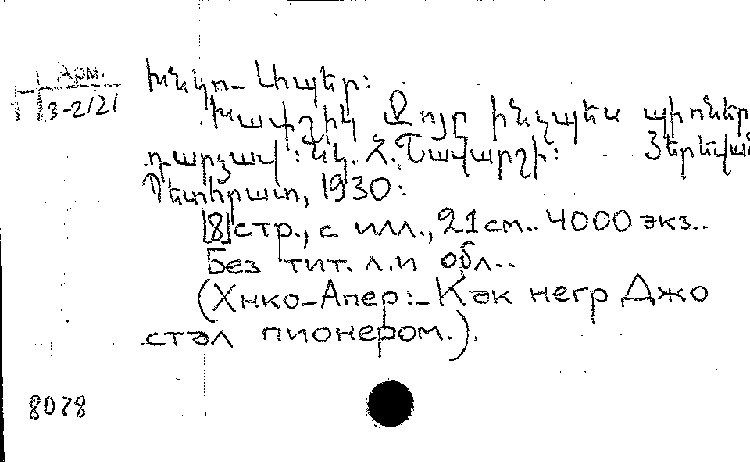 Арм.
3-2121
Խնկո-Ապեր։
Խափշիկ Ջոյը ինչպես պիոներ
դարձավ։ Նկ. Հ. Շավարշի։ Յերեվան
Պետհրատ, 1930։
[8] стр., с илл., 21 см.. 4000 экз..
Без тит. л. и обл..
(Хнко-Апер:- Как негр Джо
стал пионером.).
8078